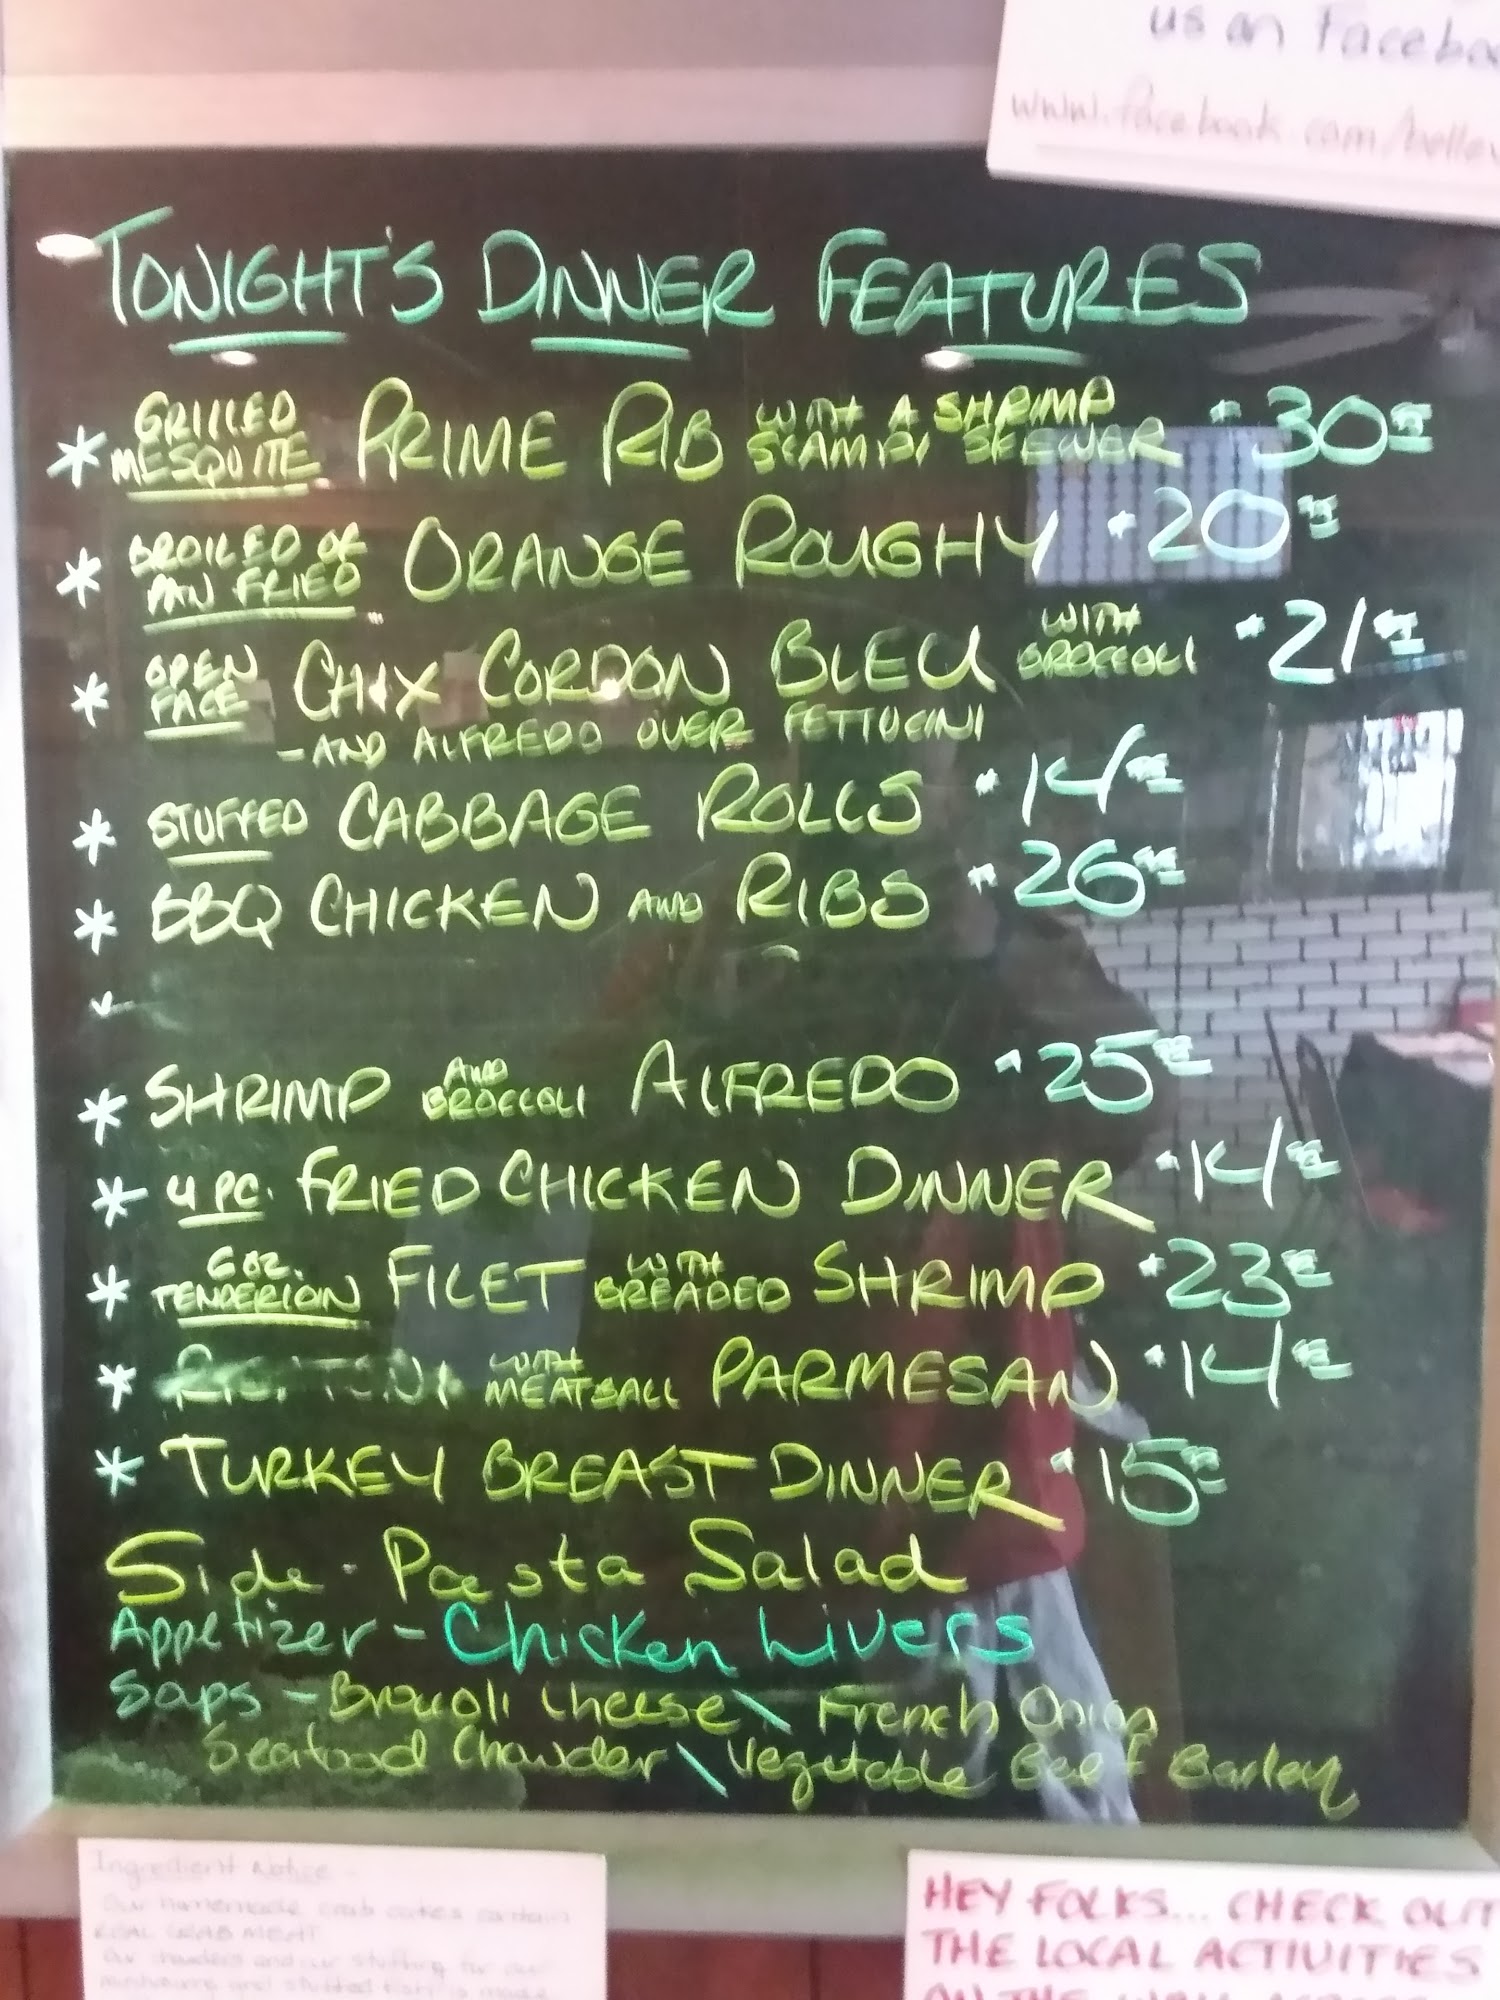 us on Facebo
www.facebook.com/bellev
TONIGHT'S DINNER FEATURES
* GRILLED MESQUITE PRIME RIB WITH A SHRIMP SCAMPI SKEWER $30
* BROILED OR PAN FRIED ORANGE ROUGHY $20
* OPEN FACE CHIX CORDON BLEU WITH BROCCOLI $21
- AND ALFREDO OVER FETTUCINI
* STUFFED CABBAGE ROLLS $14
* BBQ CHICKEN AND RIBS $26
* SHRIMP AND BROCCOLI ALFREDO $25
* 4 PC. FRIED CHICKEN DINNER $14
* 6 OZ. TENDERLOIN FILET WITH BREADED SHRIMP $23
* RIGITONI WITH MEATBALL PARMESAN $14
* TURKEY BREAST DINNER $15
Side - Pasta Salad
Appetizer - Chicken Livers
Soups - Broccoli Cheese \ French Onion
Seafood Chowder \ Vegetable Beef Barley
Ingredient Notice -
Our homemade crab cakes contain
REAL CRAB MEAT
Our chowders and our stuffing for our
mushrooms and stuffed
HEY FOLKS... CHECK OUT
THE LOCAL ACTIVITIES
ON THE